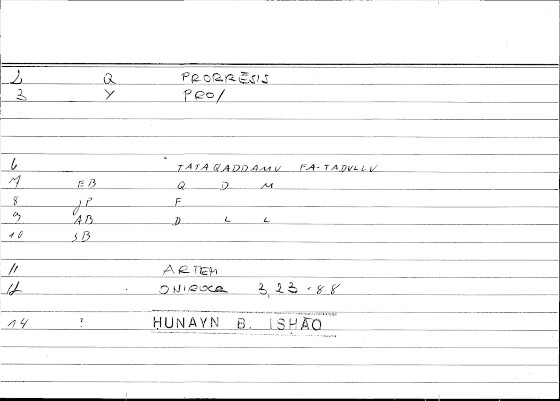 2 Q PRORRĒSIS
3 Y PRO/
6 TATAQADDAMU FA-TADULLU
7 EB Q D M
8 JP F
9 AB D L L
10 SB
11 ARTEM
12 ONIROCR 3,23 - 88
14 ! HUNAYN B. ISHĀQ